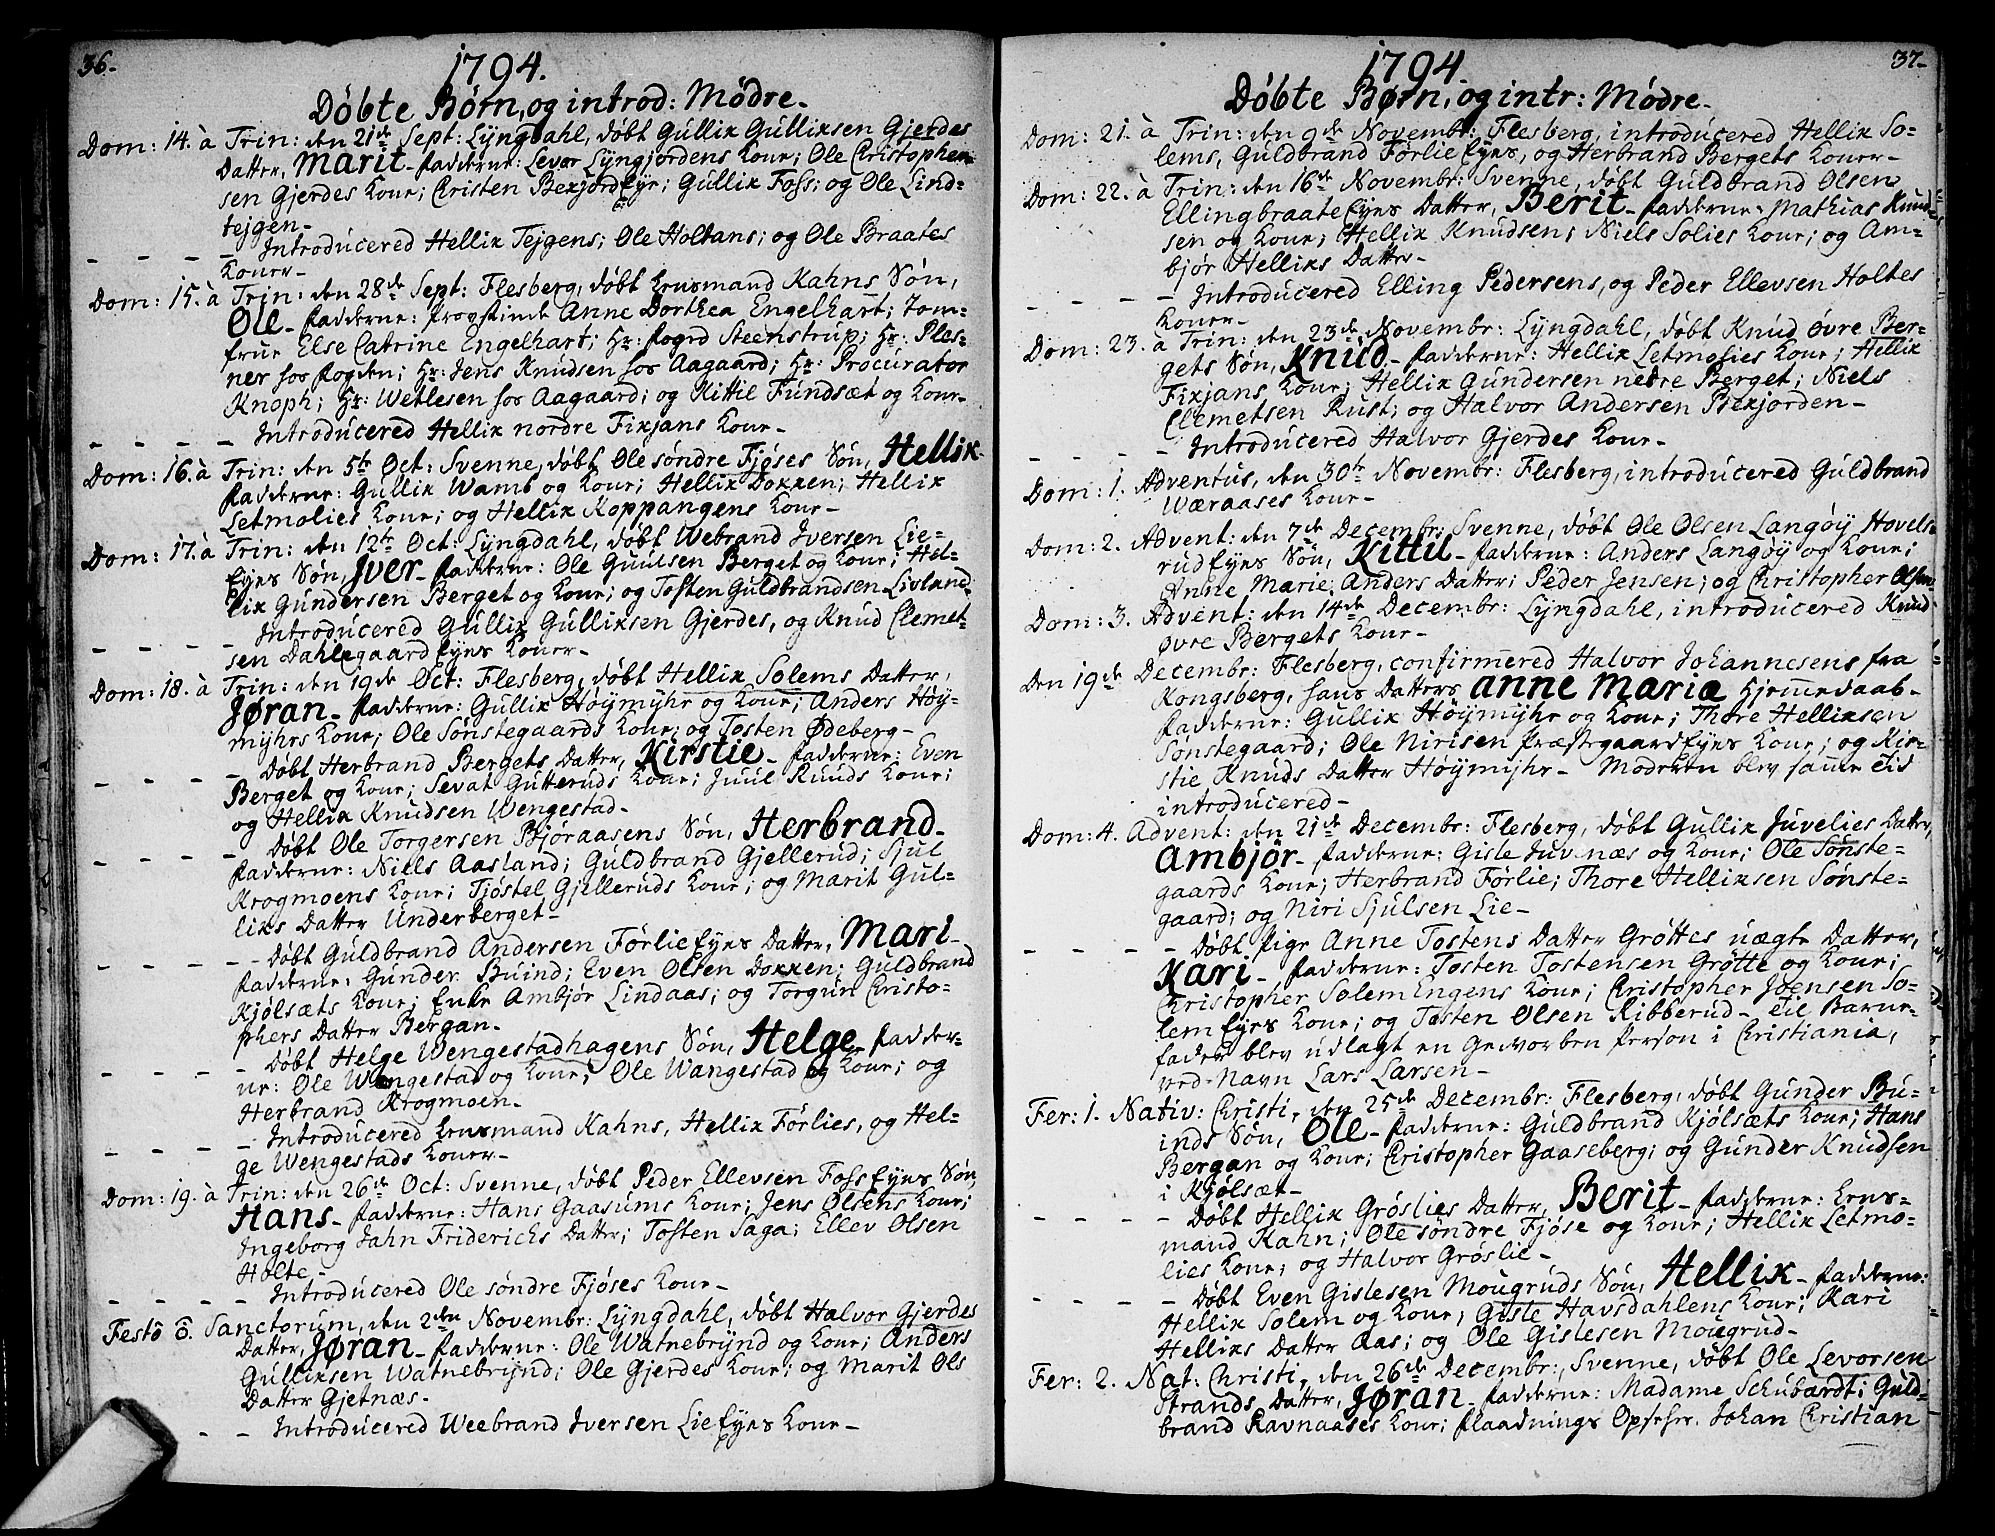 36.
1794.
Döbte Börn, og introd: Mödre.
Dom: 14. à Trin: den 21de Sept: Lyngdahl, döbt Gullik Gulliksen Gjerdes
Datter, Marit. Fadderne: Levor Lyngjordens Kone; Ole Christopher-
sen Gjerdes Kone; Christen Bekjord Eye; Gullik Foss; og Ole Lind-
tejgen.
- - - - Introducered Hellik Tejgens; Ole Holtans; og Ole Braates
Koner.
Dom: 15. à Trin: den 28de Sept: Flesberg, döbt Lensmand Kahns Sön,
Ole. Fadderne: Provstinde Anne Dorthea Engelhart; Jom-
frue Else Catrine Engelhart; Hr: Fogrd Steenstrup; Hr: Ples-
ner hos Fogden; Hr: Jens Knudsen hos Aagaard; Hr: Procurator
Knoph; Hr: Wetlesen hos Aagaard; og Kittil Fundsæt og Kone.
- - - - Introducered Hellik nordre Fixjans Kone.
Dom: 16. à Trin: den 5te Oct: Svenne, döbt Ole söndre Fjöses Sön, Hellik.
Fadderne: Gullik Wamb og Kone; Hellik Dokken; Hellik
Letmolies Kone; og Hellik Koppangens Kone.
Dom: 17. à Trin: den 12te Oct: Lyngdahl, döbt Webrand Iversen Lie-
Eyes Sön, Iver. Fadderne: Ole Guulsen Berget og Kone; Hel-
lik Gundersen Berget og Kone; og Tosten Guldbrandsen Livland.
- - - - Introducered Gullik Gulliksen Gjerdes, og Knud Clemet-
sen Dahlegaard Eyes Koner.
Dom: 18. à Trin: den 19de Oct: Flesberg, döbt Hellik Solems Datter,
Jøran. Fadderne: Gullik Höymyhr og Kone; Anders Höy-
myhrs Kone; Ole Sönstegaards Kone; og Tosten Ødeberg.
- - - - Döbt Herbrand Bergets Datter, Kirstie. Fadderne: Even
Berget og Kone; Sevat Gutteruds Kone; Juul Ruuds Kone;
og Hellik Knudsen Wengestad.
- - - - Döbt Ole Torgersen Björaasens Sön, Herbrand.
Fadderne: Niels Aasland; Guldbrand Gjellerud; Sjul
Krogmoens Kone; Tjöstel Gjelleruds Kone; og Marit Gul-
liks Datter Underberget.
- - - - Döbt Guldbrand Andersen Förlie Eyes Datter, Mari.
Fadderne: Gunder Buind; Even Olsen Dokken; Guldbrand
Kjölsæts Kone; Enke Ambjör Lindaas; og Torgun Christo-
phers Datter Bergan.
- - - - Döbt Helge Wengestadhagens Sön, Helge. Fadder-
ne: Ole Wengestad og Kone; Ole Wangestad og Kone; og
Herbrand Krogmoen.
- - - - Introducered Lensmand Kahns, Hellik Förlies, og Hel-
ge Wengestads Koner.
Dom: 19. à Trin: den 26de Oct: Svenne, döbt Peder Ellevsen Foss Eyes Sön,
Hans. Fadderne: Hans Gaasums Kone; Jens Olsens Kone;
Ingeborg Jahn Friderichs Datter; Tosten Saga; Ellev Olsen
Holte.
- - - - Introducered Ole söndre Fjöses Kone.
Festo O. Sanctorum, den 2den Novembr: Lyngdahl, döbt Halvor Gjerdes
Datter, Jøran. Fadderne: Ole Watnebrynd og Kone; Anders
Gulliksen Watnebrynd; Ole Gjerdes Kone; og Marit Ols
Datter Gjetnæs.
- - Introducered Weebrand Iversen Lie Eyes Kone.
37.
1794.
Döbte Børn, og intr: Mödre.
Dom: 21. à Trin: den 9de Novembr: Flesberg, introducered Hellik So-
lems, Guldbrand Förlie Eyes, og Herbrand Bergets Koner.
Dom: 22. à Trin: den 16de Novembr: Svenne, döbt Guldbrand Olsen
Ellingbraate Eyes Datter, Berit. Fadderne: Mathias Knud-
sen og Kone; Hellik Knudsen; Niels Solies Kone; og Am-
björ Helliks Datter.
- - - - Introducered Elling Pedersens, og Peder Ellevsen Holtes
Koner.
Dom: 23. à Trin: den 23de Novembr: Lyngdahl, döbt Knud övre Ber-
gets Sön, Knud. Fadderne: Hellik Letmolies Kone; Hellik
Fixjans Kone; Hellik Gundersen nedre Berget; Niels
Clemetsen Rust; og Halvor Andersen Bekjorden.
- - - - Introducered Halvor Gjerdes Kone.
Dom: 1. Adventus, den 30te Novembr: Flesberg, introducered Guldbrand
Wæraases Kone.
Dom: 2. Advent: den 7de Decembr: Svenne, döbt Ole Olsen Langöy Hovels-
rud Eyes Sön, Kittil. Fadderne: Anders Langöy og Kone;
Anne Marie Anders Datter; Peder Jensen; og Christopher Olsen.
Dom: 3. Advent: den 14de Decembr: Lyngdahl, introducered Knud
övre Bergets Kone.
Den 19de Decembr: Flesberg, confirmered Halvor Johannesens fra
Kongsberg, hans Datters Anne Maria Hjemmedaab.
Fadderne: Gullik Höymyhr og Kone; Thore Helliksen
Sönstegaard; Ole Nirisen Præstegaard Eyes Kone; og Kir-
stie Knuds Datter Höymyhr. Moderen blev samme Tid
introducered.
Dom: 4. Advent: den 21de Decembr: Flesberg, döbt Gullik Juvelies Datter,
Ambjör. Fadderne: Gisle Juvenæs og Kone; Ole Sönste-
gaards Kone; Herbrand Förlie; Thore Helliksen Sönste-
gaard; og Niri Sjulsen Lie.
- - - - Döbt Pige Anne Tostens Datter Gröttes uægte Datter,
Kari. Fadderne: Tosten Tostensen Grötte og Kone;
Christopher Solem Engens Kone; Christopher Joensen So-
lem Eyes Kone; og Tosten Olsen Ribberud. Til Barne-
fader blev udlagt en Geworben Person i Christiania,
ved Navn Lars Larsen.
Fer: 1. Nativ: Christi, den 25de Decembr: Flesberg, döbt Gunder Bu-
inds Sön, Ole. Fadderne: Guldbrand Kjölsæts Kone; Hans
Bergan og Kone; Christopher Gaaseberg; og Gunder Knudsen
i Kjölsæt.
- - - - Döbt Hellik Gröslies Datter, Berit. Fadderne: Lens-
mand Kahn; Ole söndre Fjöse og Kone; Hellik Letmo-
lies Kone; og Halvor Gröslie.
- - - - Döbt Even Gislesen Mougruds Sön, Hellik. Fadderne:
Hellik Solem og Kone; Gisle Havsdahlens Kone; Kari
Helliks Datter Aas; og Ole Gislesen Mougrud.
Fer: 2. Nat: Christi, den 26de Decembr: Svenne, döbt Ole Levorsen
Strands Datter, Jøran. Fadderne: Madame Schubardt; Guld-
brand Ravnaases Kone; Flaadnings Opsehr. Johan Christian